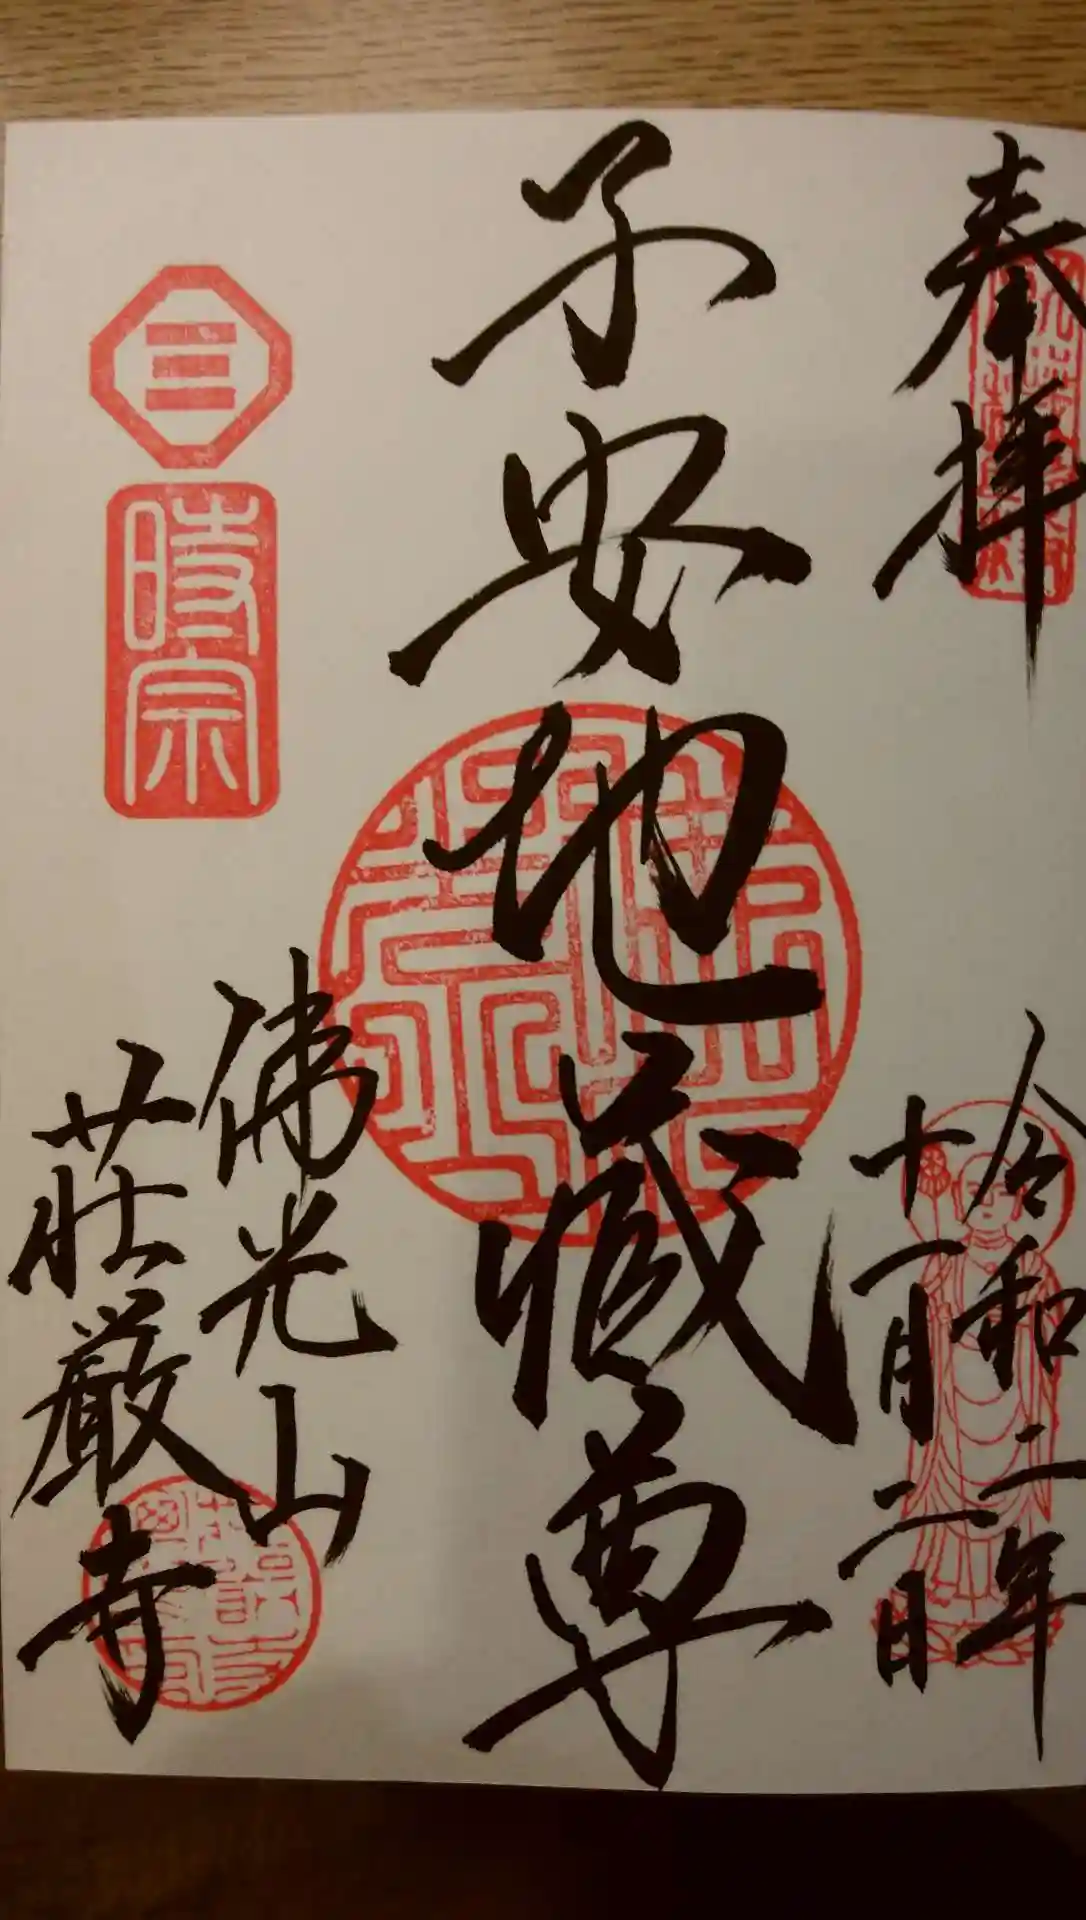 奉拝
令和二年
十一月二日
子安地蔵尊
佛光山
荘厳寺
三
時宗